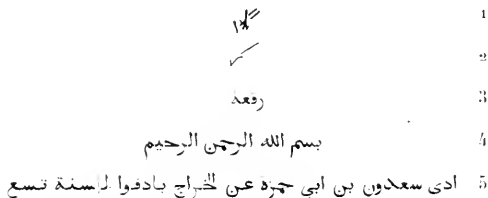 1
2
3 رفعه
4 بسم الله الرحمن الرحيم
5 ادى سعدون بن ابى حمزة عن الخراج بادفوا لسنة تسع